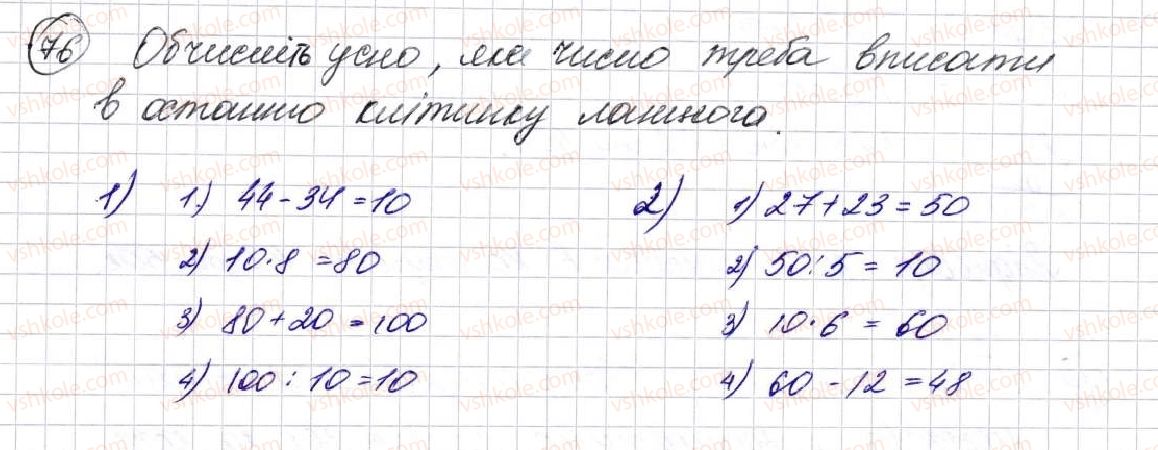 76 Обчисліть усно, яке число треба вписати
в останню клітинку ланцюга.
1) 1) 44 - 34 = 10
2) 10 · 8 = 80
3) 80 + 20 = 100
4) 100 : 10 = 10
2) 1) 27 + 23 = 50
2) 50 : 5 = 10
3) 10 · 6 = 60
4) 60 - 12 = 48